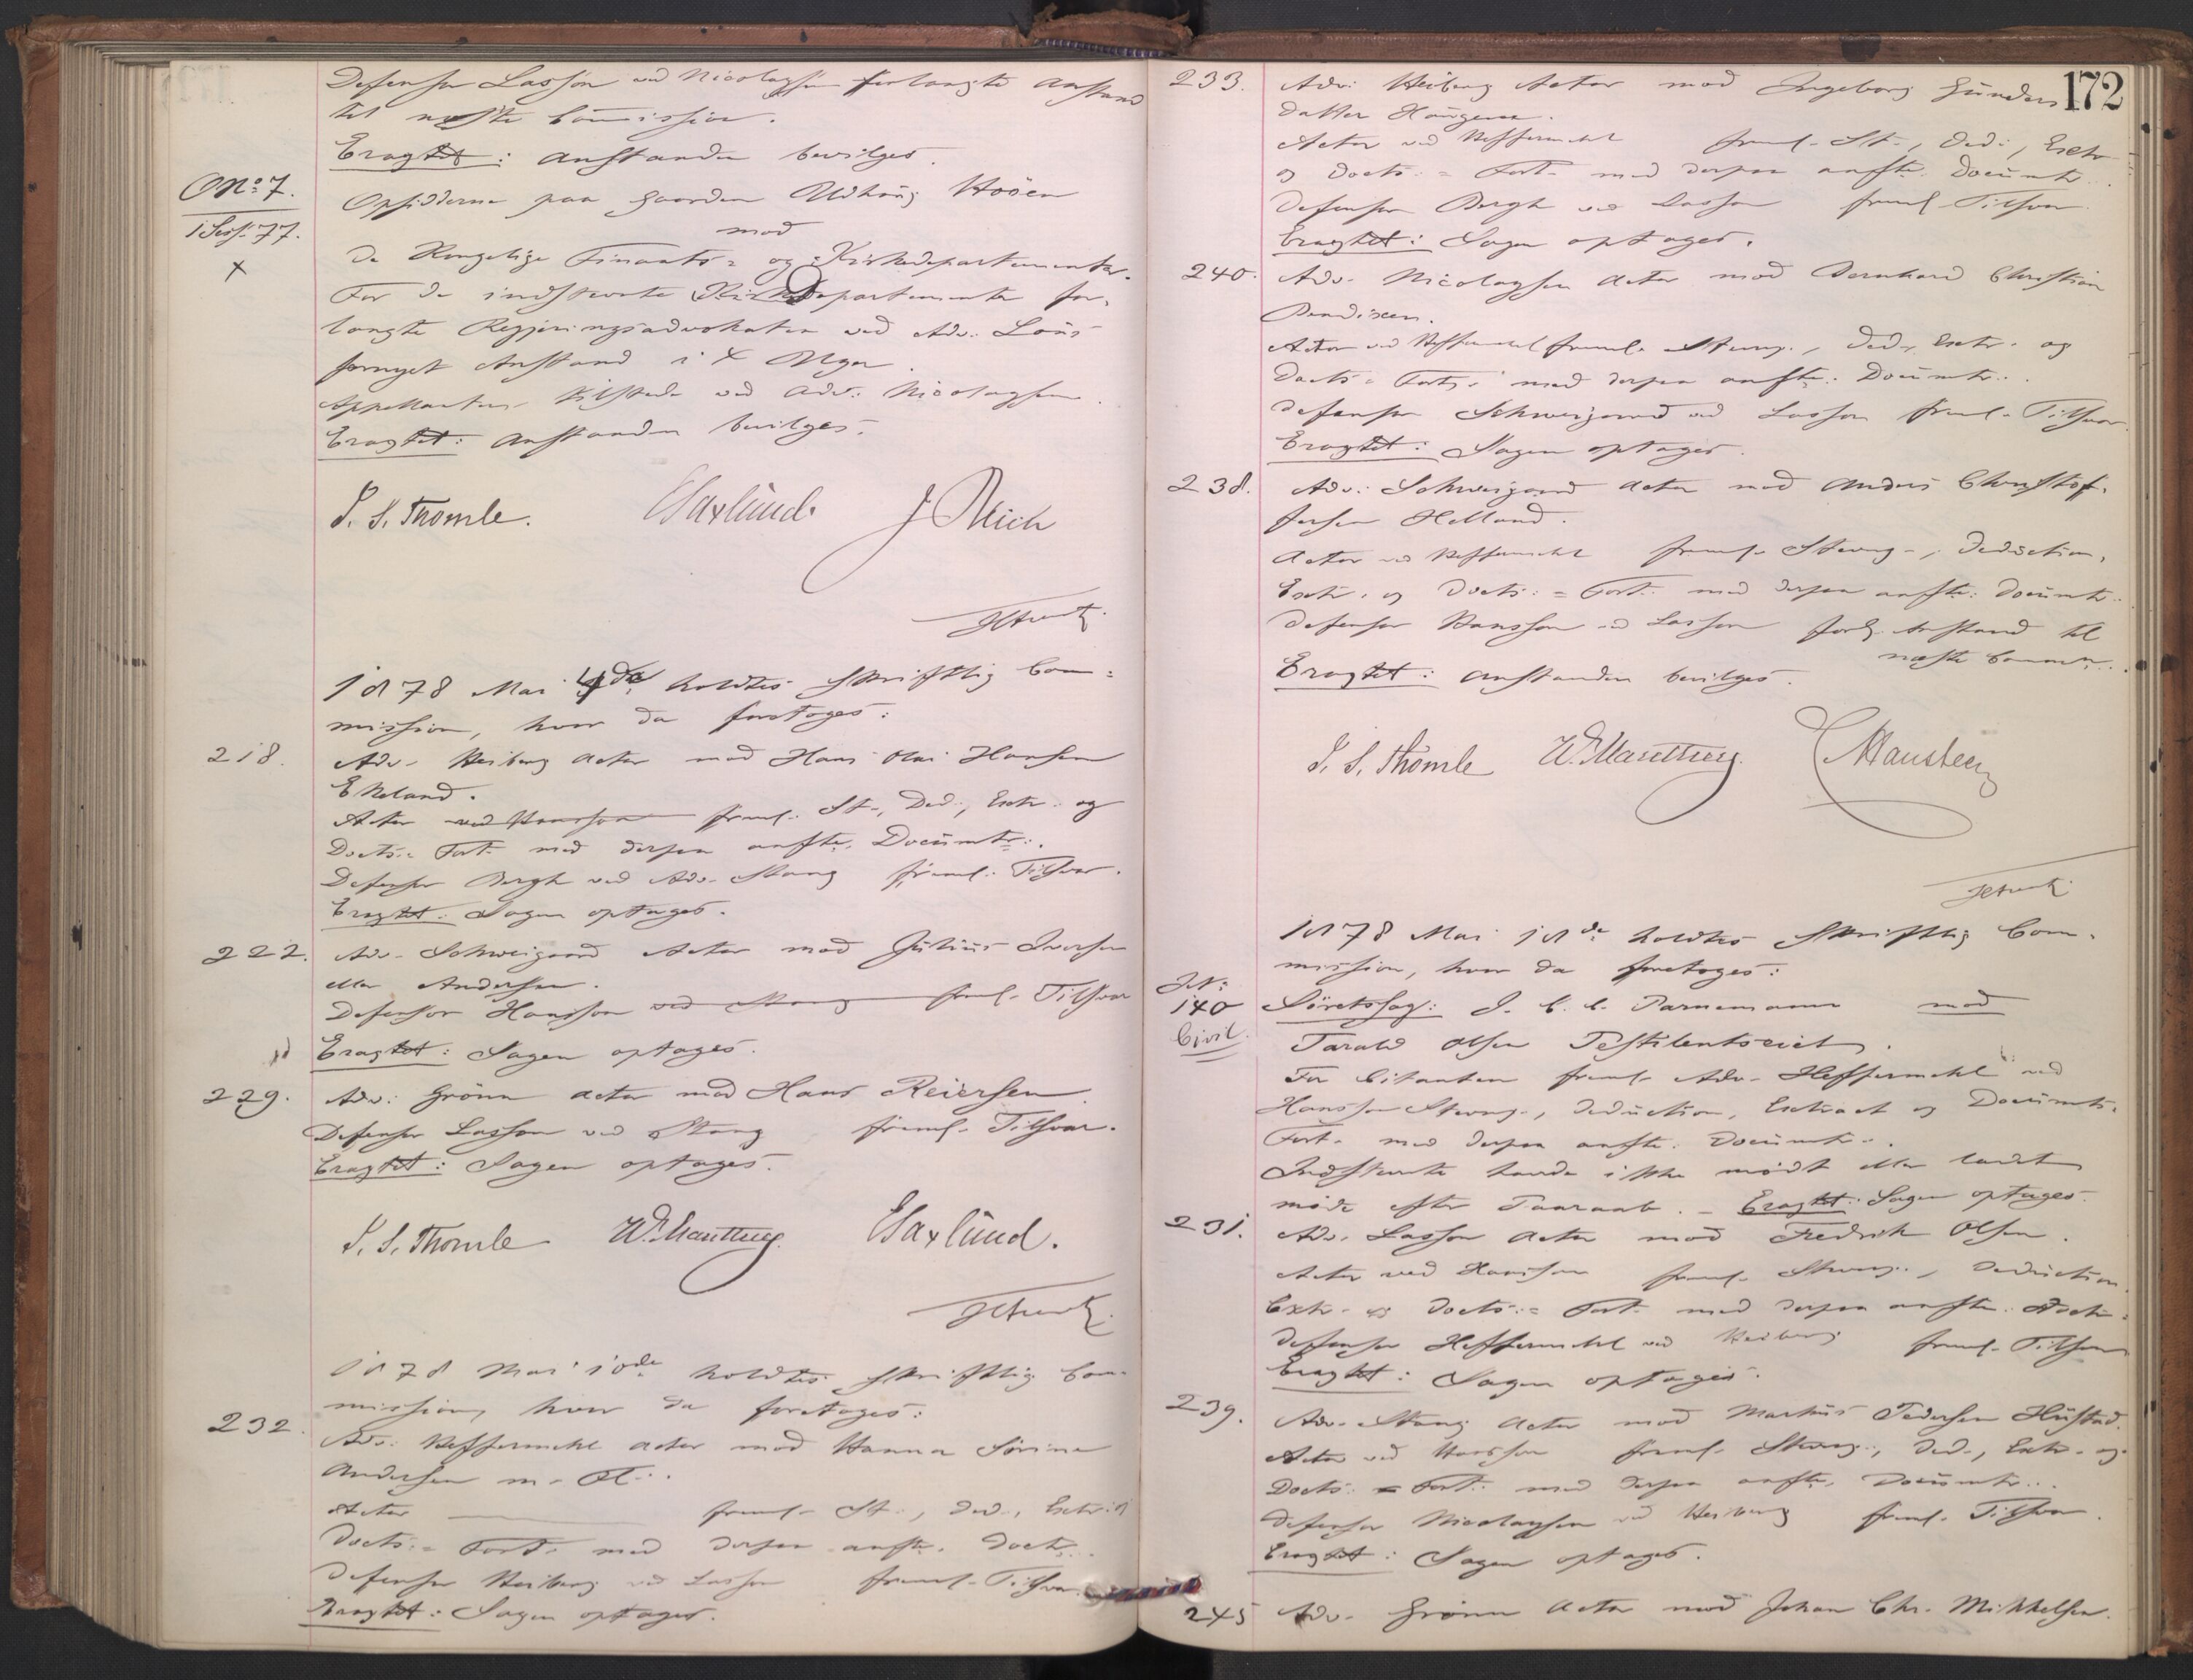 Defensor Lasson ved Nicolaysen forlangte Anstand
til næste Commission.
Eragtet: Anstanden bevilges.
No. 7.
1 Sess. 77.
x
Opsidderne paa Gaarden Udhaug
mod
De Kongelige Finants= og Kirkedepartementer.
For de indstevnte Departementer for=
langte Regjeringsadvokaten ved Adv. Lous
fornyet Anstand i 4 Uger.
Appellanten tilstede ved Adv. Nicolaysen.
Eragtet: Anstanden bevilges.
I. S. Thomle. E Saxlund. J Reich
1878 Mai 4de holdtes skriftlig Com=
mission, hvor da foretoges:
218. Adv. Heiberg Actor mod Hans Olai Hansen
Ekeland.
Actor ved Hansson freml. St., Ded., Extr. og
Docts.= Fort. med derpaa anfte. Documtr.
Defensor Bergh ved Adv. Stang freml. Tilsvar.
Eragtet: Sagen optages.
222. Adv. Schweigaard Actor mod Julius Iversen
eller Andersen.
Defensor Hansson ved Stang freml. Tilsvar
Eragtet: Sagen optages.
229. Adv. Grönn Actor mod Hans Reiersen.
Defensor Lasson ved Stang freml. Tilsvar.
Eragtet: Sagen optages.
I. S. Thomle E Saxlund.
1878 Mai 10de holdtes skriftlig Com=
mission, hvor da foretoges:
232. Adv. Heffermehl Actor mod Hanna Sörine
Andersen m. Fl.
Actor freml. St., Ded., Extr. og
Docts.= Fort. med derpaa anfte. Doctr.
Defensor Heiberg ved Lasson freml. Tilsvar.
Eragtet: Sagen optages.
172
233. Adv. Heiberg Actor mod Ingeborg Gunders
datter Haugene.
Actor ved Heffermehl freml. St., Ded., Extr.
og Docts.= Fort. med derpaa anfte. Documtr.
Defensor Bergh ved Lasson freml. Tilsvar.
Eragtet: Sagen optages.
240. Adv. Nicolaysen Actor mod Bernhard Christian
Bendixen.
Actor ved Heffermehl freml. Stevng., Ded., Extr. og
Docts.= Fort. med derpaa anfte. Documtr.
Defensor Schweigaard ved Lasson freml. Tilsvar.
Eragtet: Sagen optages.
238. Adv. Schweigaard Actor mod Anders Christof=
fersen Helland.
Actor ved Heffermehl freml. Stevng., Deduction,
Extr. og Docts.= Fort. med derpaa anfte. Documtr.
Defensor Hansson ved Lasson forl. Anstand til
næste Comm.
Eragtet: Anstanden bevilges.
I. S. Thomle
1878 Mai 18de holdtes skriftlig Com=
mission, hvor da foretoges:
140
Civil.
Söretssag: J. C. C. mod
Tarald Olsen
For Citanten freml. Adv. Heffermehl ved
Hansson Stevng., Deduction, Extract og Documts.
Fort. med derpaa anfte. Documtr.
Indstevnte havde ikke mödt eller ladet
möde efter Paaraab. – Eragtet: Sagen optages.
231. Adv. Lasson Actor mod Fredrik Olsen.
Actor ved Hansson freml. Stevng., Deduction
Extr. og Docts.= Fort. med derpaa anfte. Doctr.
Defensor Heffermehl ved Heiberg freml. Tilsvar
Eragtet: Sagen optages.
239. Adv. Stang Actor mod Martinus Pedersen Hustad.
Actor ved Hansson freml. Stevng., Ded., Extr. og
Docts.= Fort. med derpaa anfte. Documtr.
Defensor Nicolaysen ved Heiberg freml. Tilsvar.
Eragtet: Sagen optages.
245 Adv. Grönn Actor mod Johan Chr. Mikkelsen.